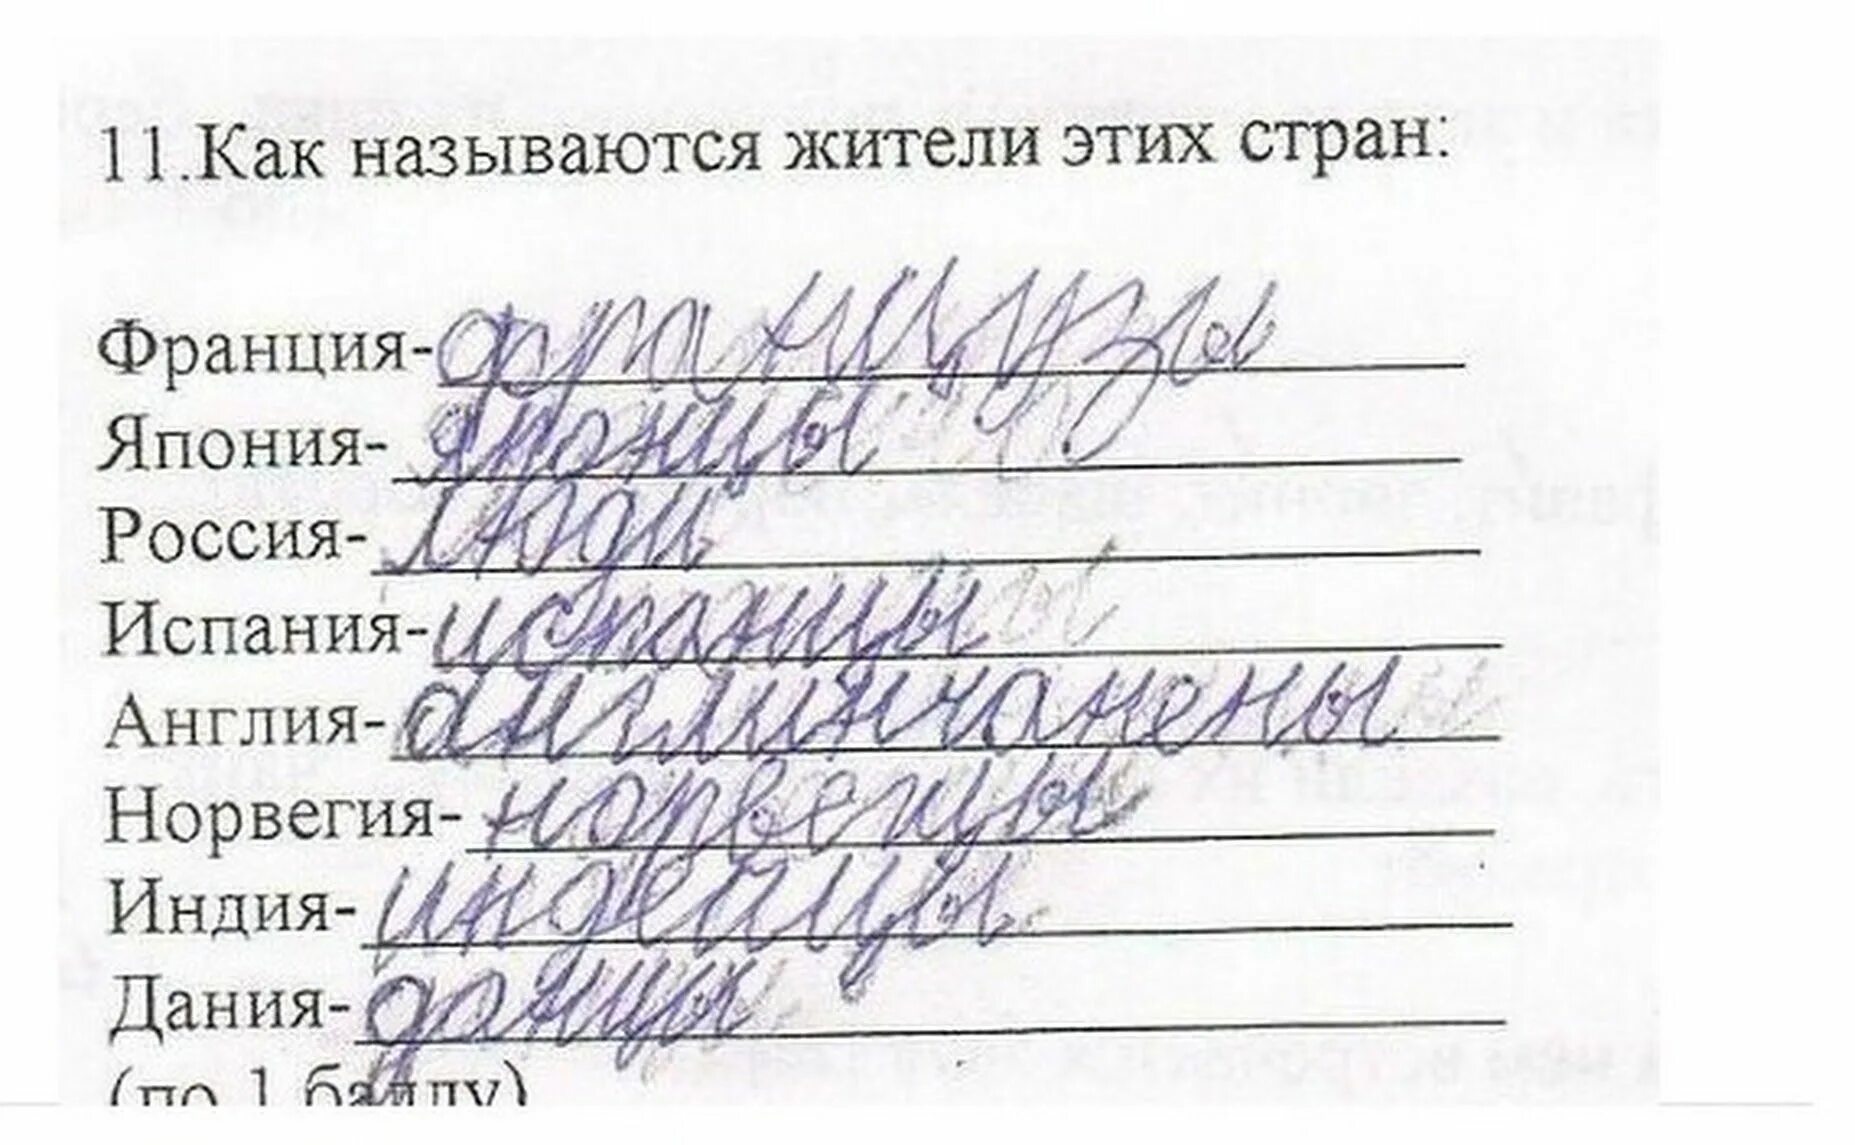 11.Как называются жители этих стран:
Франция-французы
Япония-японцы
Россия-люди
Испания-испанцы
Англия-англинчанены
Норвегия-норвегцы
Индия-индейцы
Дания-данцы
(по 1 баллу)